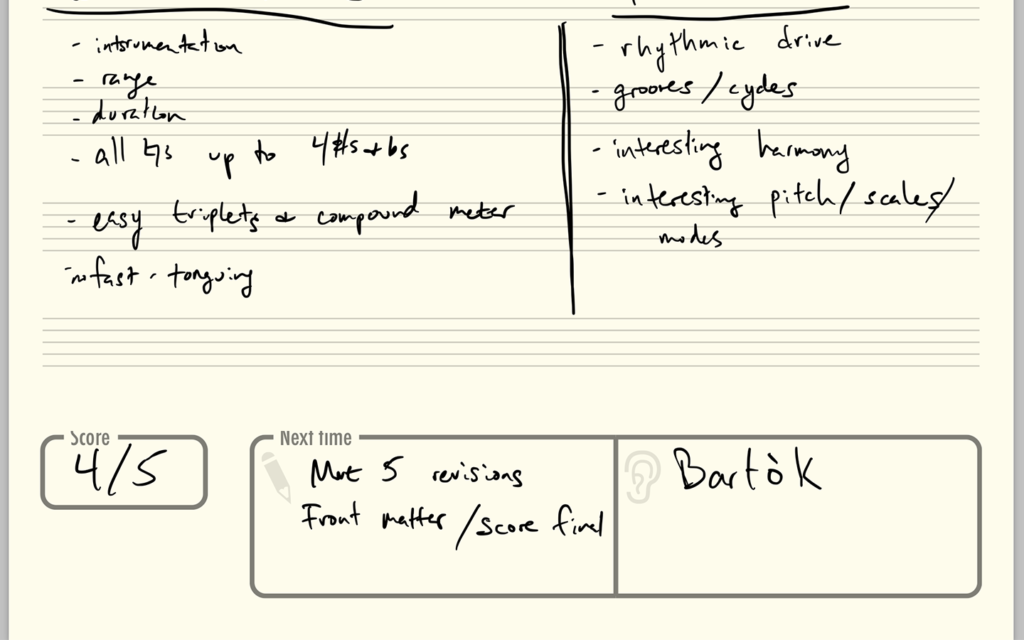 - intsrumentation
- range
- duration
- all ♮s up to 4#s + bs
- easy triplets & compound meter
- no fast tonguing
- rhythmic drive
- grooves/cycles
- interesting harmony
- interesting pitch/scales/
modes
Score
4/5
Next time
Mvt 5 revisions
Front matter/score final
Bartòk